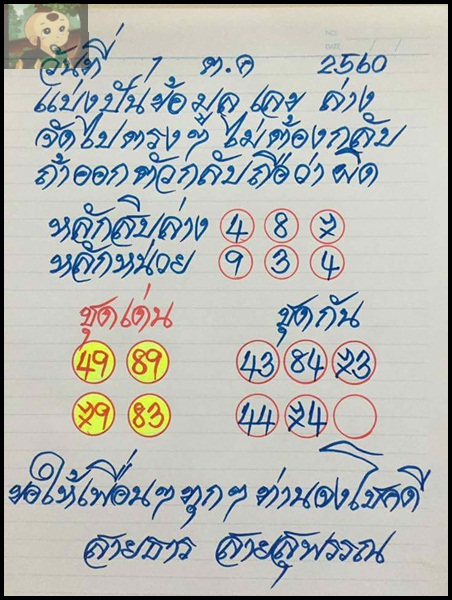 วันที่ 1 ต.ค 2560
แบ่งปันข้อมูล เลข ล่าง
จัดไปตรงๆ ไม่ต้องกลับ
ถ้าออกตัวกลับถือว่า ผิด
หลักสิบล่าง 4 8 7
หลักหน่วย 9 3 4
ชุดเด่น ชุดกัน
49 89 43 84 73
79 83 44 74
ขอให้เพื่อนๆ ทุกๆ ท่านจงโชคดี
สายธาร สายสุพรรณ